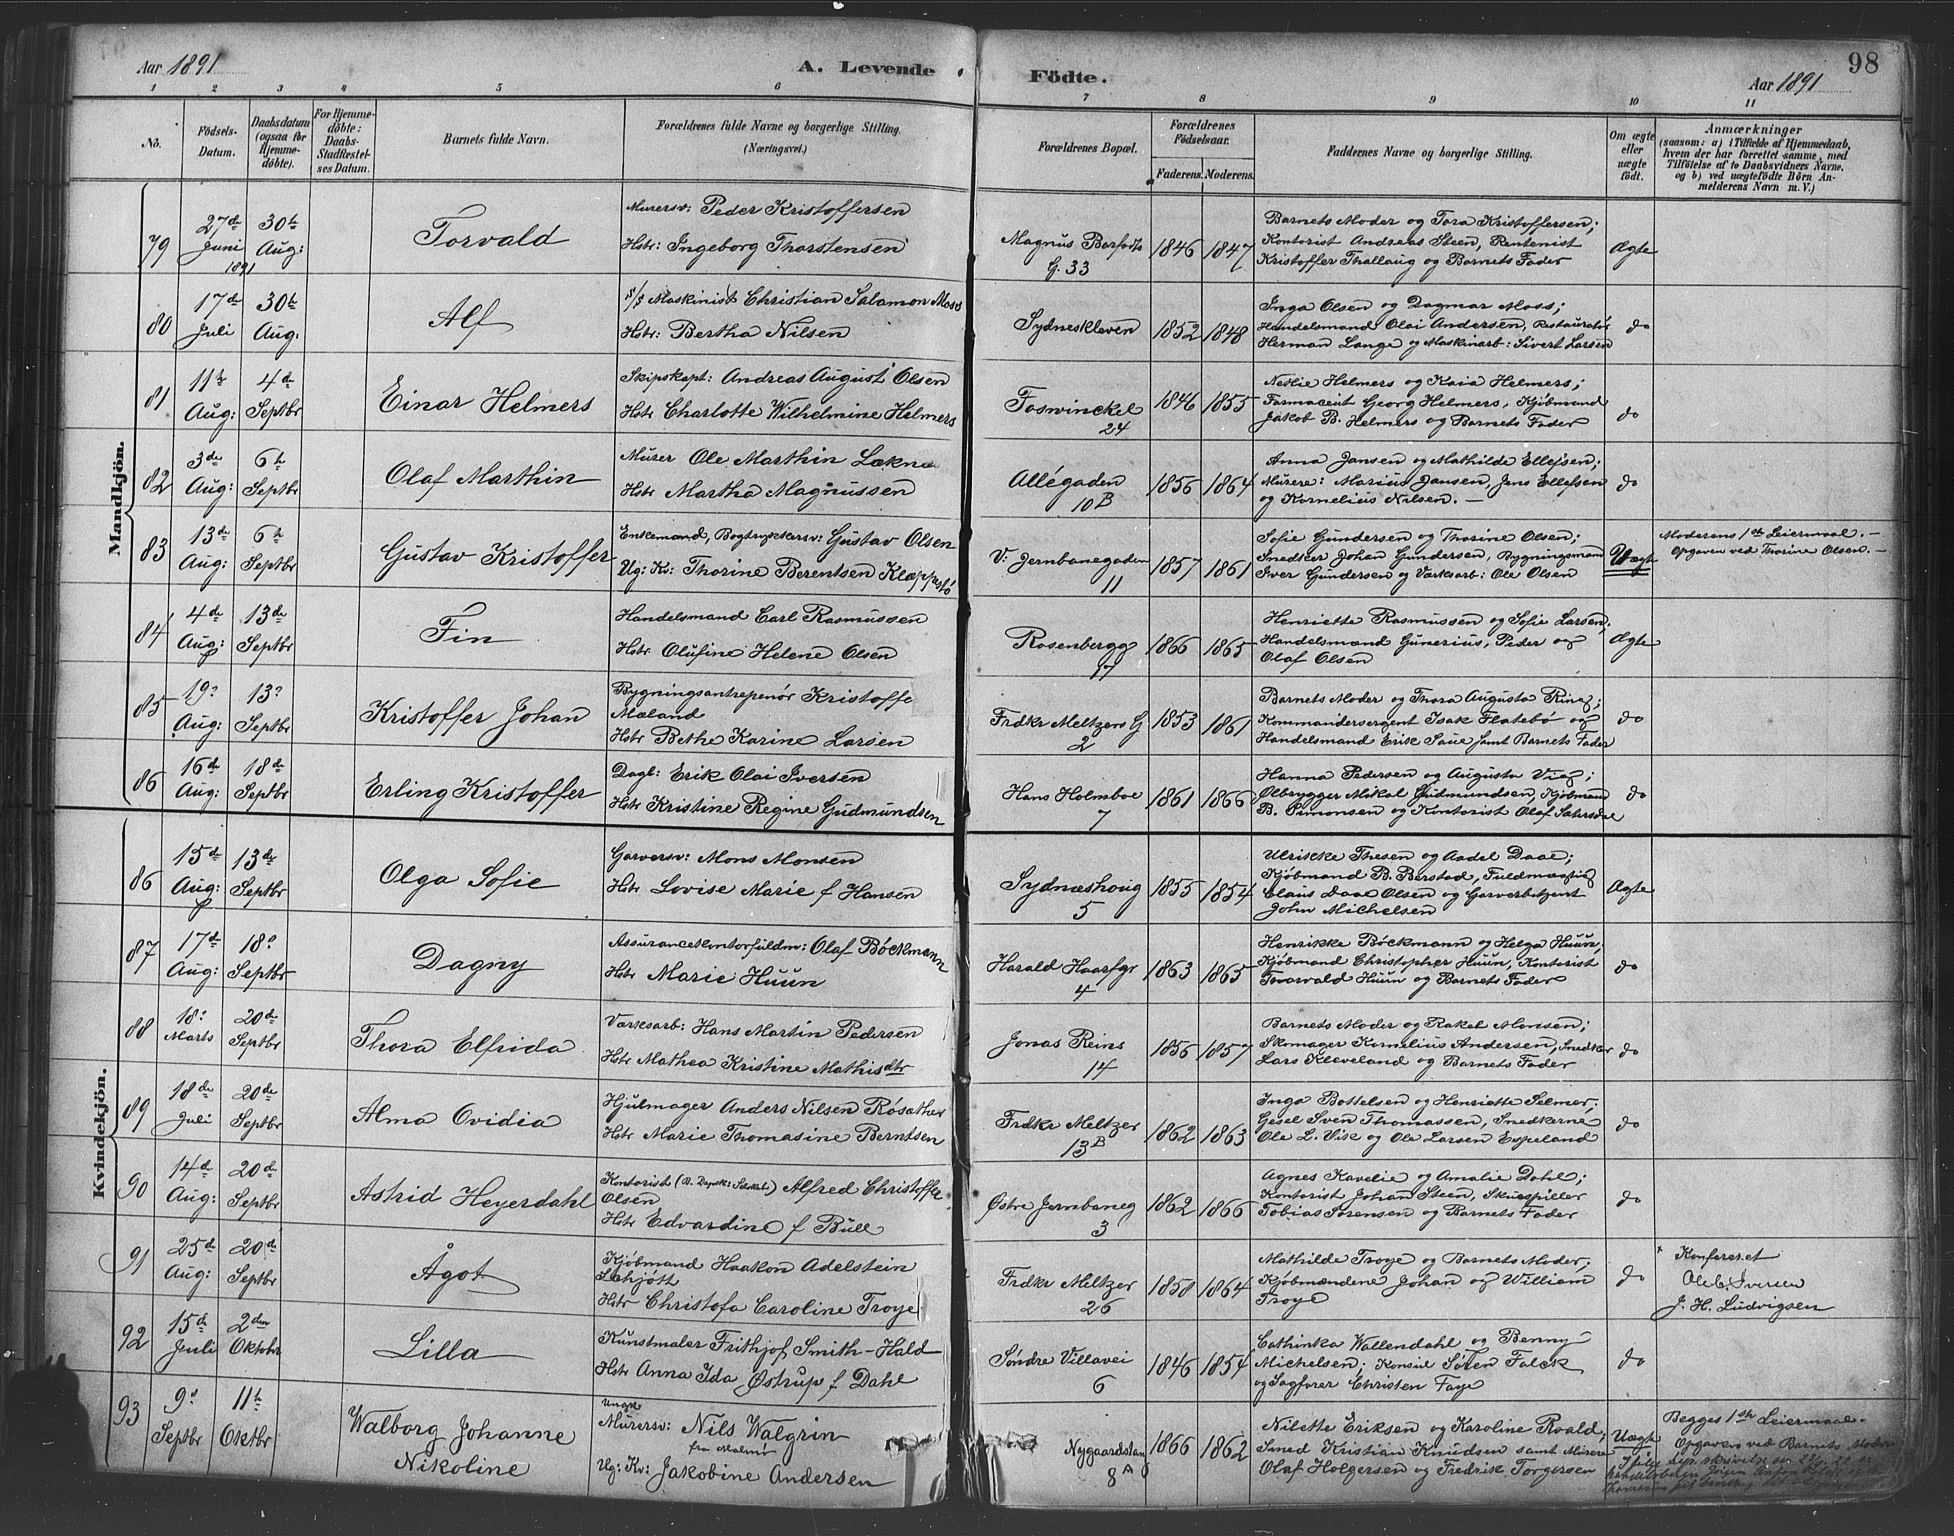 98
Aar 1891
A. Levende
Födte.
Aar 1891
1 2 3 4 5 6 7 8 9 10 11
No.
Födsels-
Datum.
Daabsdatum
(ogsaa for
Hjemme-
döbte).
For Hjemme-
döbte:
Daabs-
Stadfestel-
ses Datum.
Barnets fulde Navn.
Forældrenes fulde Navne og borgerlige Stilling.
(Næringsvei.)
Forældrenes Bopæl.
Forældrenes
Födselsaar.
Faderens. Moderens.
Faddernes Navne og borgerlige Stilling.
Om ægte
eller
uægte
födt.
Anmærkninger
(saasom: a) i Tilfælde af Hjemmedaab,
hvem der har forrettet samme, med
Tilföielse af to Daabsvidners Navne,
og b) ved uægtefödte Börn An-
melderens Navn m. V.)
Mandkjön.
79
27de
Juni
1891
30te
Aug:
Torvald
Murersv: Peder Kristoffersen
Hstr: Ingeborg Thorstensen
Magnus Barfodts
G. 33
1846 1847
Barnets Moder og Tora Kristoffersen;
Kontorist Andreas Steen, Rentenist
Kristoffer Thallaug og Barnets Fader
Ægte
80
17de
Juli
30te
Aug.
Alf
S/S Maskinist Christian Salamon Moss
Hstr: Bertha Nilsen
Sydneskleven
1852 1848
Inga Olsen og Dagmar Moss;
Handelsmand Olai Andersen, Restauratör
Herman Lange og Maskinarb: Sivert Larsen
do
81
11te
Aug:
4de
Septbr
Einar Helmers
Skipskapt: Andreas August Olsen
Hstr Charlotte Wilhelmine Helmers
Foswinckel
24
1846 1855
Netlie Helmers og Kaia Helmers;
Farmaceut Georg Helmers, Kjöbmand
Jakob B. Helmers og Barnets Fader
do
82
3de
Aug:
6te
Septbr
Olaf Marthin
Murer Ole Marthin Lekna
Hstr Martha Magnussen
Allégaden
10 B
1856 1864
Anna Jansen og Mathilde Ellefsen;
Murere: Marius Jansen, Jens Ellefsen
og Kornelius Nilsen. —
do
83
13de
Aug:
6te
Septbr
Gustav Kristoffer
Enkemand, Bogtrykkersv: Gustav Olsen
Ug: Kv: Thorine Berentsen Kleppestø
V: Jernbanegaden
11
1857 1861
Sofie Gundersen og Thorine Olsen;
Snedker Johan Gundersen, Bygningsmand
Iver Gundersen og Værksarb: Ole Olsen
Uægte
Moderens 1ste Leiermaal. —
Opgaven ved Thorine Olsen. —
84
4de
Aug:
13de
Septbr
Fin
Handelsmand Carl Rasmussen
Hstr Olufine Helene Olsen
Rosenbergg
17
1866 1865
Henriette Rasmussen og Sofie Larsen,
Handelsmænd Gunerius, Peder og
Olaf Olsen
Ægte
85
19:
Aug:
13:
Septbr
Kristoffer Johan
Bygningsantrepenör Kristoffe
Mæland
Hstr Bethe Karine Larsen
Frdkr Meltzers G
2
1853 1861
Barnets Moder og Thora Augusta Ring;
Kommandersergent Isak Flatebö og
Handelsmand Erik Saue samt Barnets Fader
do
86
16de
Aug:
18de
Septbr
Erling Kristoffer
Dagl: Erik Olai Iversen
Hstr Kristine Regine Gudmundsen
Hans Holmboe
7
1861 1866
Hanna Pedersen og Augusta Vig;
Ølbrygger Mikal Gudmundsen, Kjöbmand
B. Simonsen og Kontorist Olaf
do
Kvindekjön.
86
15de
Aug:
13de
Septbr
Olga Sofie
Garversv: Mons Monsen
Hstr Lovise Marie f Hansen
Sydneshoug
5
1855 1854
Ulrikke Thesen og Aadel Daae;
Kjöbmand B. Berstad, Fuldmægtig
Claus Daae Olsen og Garverbetjent
John Michelsen
Ægte
87
17de
Aug:
18:
Septbr
Dagny
Assurancekontorfuldm: Olaf Böckmann
Hstr Marie Huun
Harald Haarfgr
4
1863 1865
Henrikke Böckmann og Helga Huun,
Kjöbmand Christopher Huun, Kontorist
Torvald Huun og Barnets Fader
do
88
18:
Marts
20de
Septbr
Thora Elfrida
Værksarb: Hans Martin Pedersen
Hstr Mathea Kristine Mathisdtr
Jonas Reins
14
1856 1857
Barnets Moder og Rakel Monsen;
Skomager Kornelius Andersen, Snedker
Lars Kleveland og Barnets Fader
do
89
18de
Juli
20de
Septbr
Alma Ovidia
Hjulmager Anders Nilsen Rösæther
Hstr Marie Thomasine Berntsen
Frdkr Meltzer
13 B
1862 1863
Inga Bottelsen og Henriette Selmer;
Gesel Sven Thomassen, Snedkerne
Ole L. Vik og Ole Larsen Espeland
do
90
14de
Aug:
20de
Septbr
Astrid Heyerdahl
Kontorist Alfred Christoffe
Olsen
Hstr Edvardine f Bull
Østre Jernbaneg
3
1862 1866
Agnes Kavelie og Amalie Dahl;
Kontorist Johan Steen, Skuespiller
Tobias Sörensen og Barnets Fader
do
91
25de
Aug:
20de
Septbr
Ågot
Kjöbmand Haakon Adelstein
Schjött
Hstr Christofa Caroline Troye
Frdkr Meltzer
26
1858 1864
Mathilde Troye og Barnets Moder,
Kjöbmændene Johan og William
Troye
do
Konfereret
Ole C. Iversen
J. H. Ludvigsen
92
15de
Juli
2den
Oktober
Lilla
Kunstmaler Frithjof Smith-Hald
Hstr Anna Ida Østrup f Dahl
Søndre Villavei
6
1846 1854
Cathinka Wallendahl og Benny
Michelsen; Konsul Sören Falck
og Sagförer Christen Faye
do
93
9:
Septbr
11te
Oktbr
Walborg Johanne
Nikoline
Ungk
Murersv: Nils Walgrin
fra Malmö
Ug: Kv: Jakobine Andersen
Nygaardstan
8 A
1866 1862
Nilette Eriksen og Karoline Roald;
Smed Kristian Knudsen samt Murere
Olaf Holgersen og Fredrik Torgersen
Uægte
Begges 1ste Leiermaal.
Opgaven ved Barnets Moder